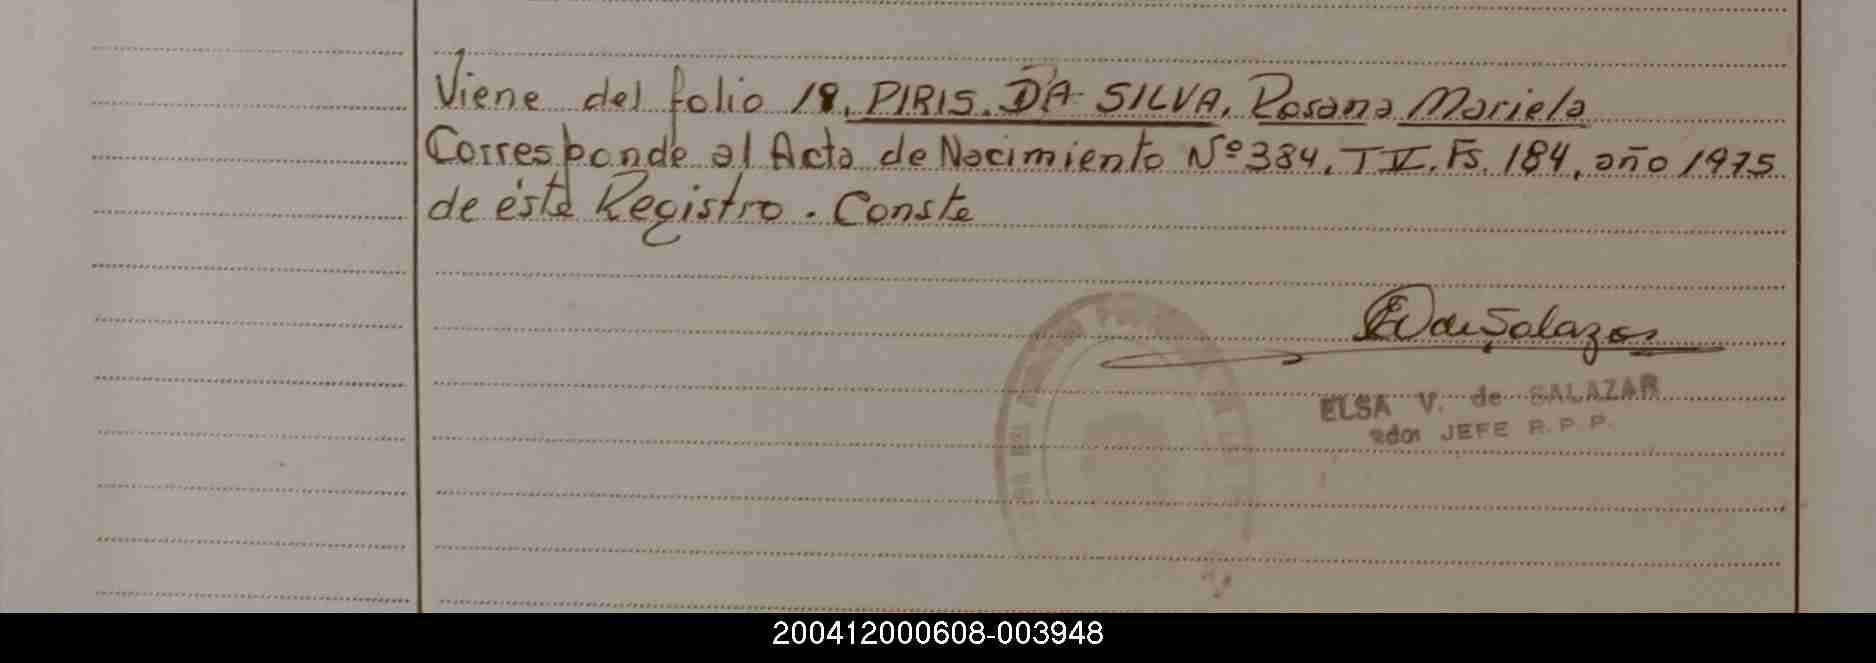 Viene del folio 18, PIRIS DA SILVA, Rosana Mariela
Corresponde al Acta de Nacimiento Nº 384, T V. Fs. 184, año 1975
de éste Registro. Conste
de Salazar
ELSA V. de SALAZAR
JEFE R. P. P.
200412000608-003948